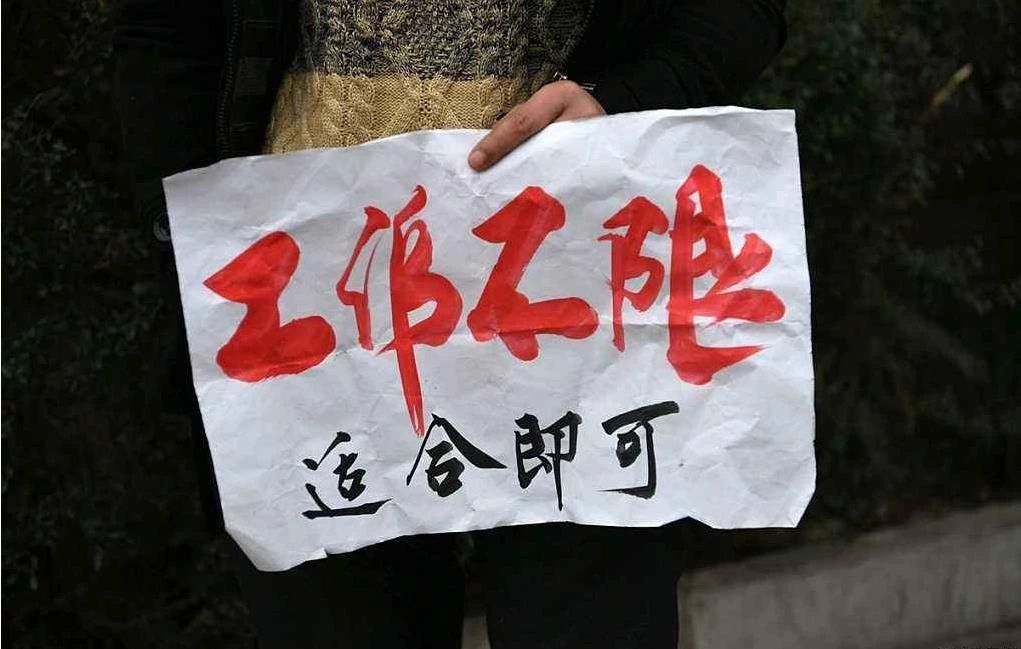 工作不限
适合即可